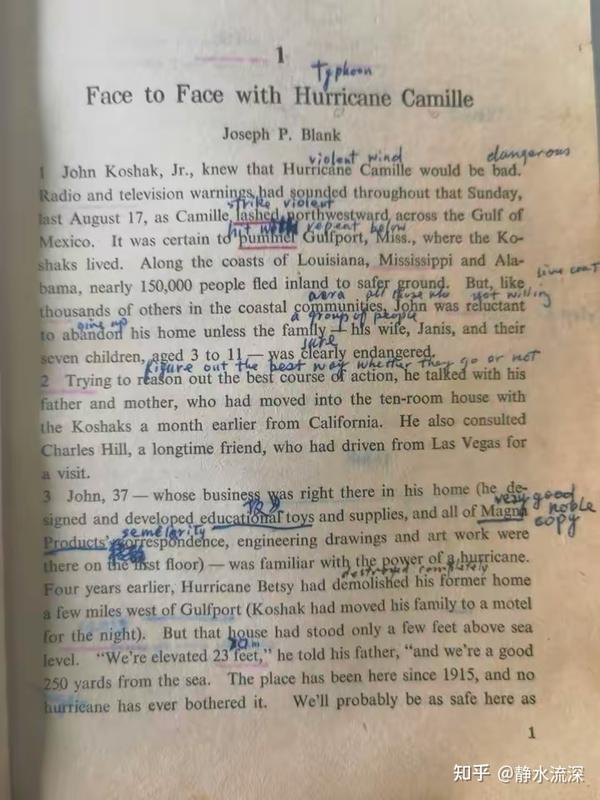 1
typhoon
Face to Face with Hurricane Camille
Joseph P. Blank
violent wind
dangerous
1 John Koshak, Jr., knew that Hurricane Camille would be bad.
Radio and television warnings had sounded throughout that Sunday,
strike violent
last August 17, as Camille lashed northwestward across the Gulf of
hit with repeat below
Mexico. It was certain to pummel Gulfport, Miss., where the Ko-
shaks lived. Along the coasts of Louisiana, Mississippi and Ala-
bama, nearly 150,000 people fled inland to safer ground. But, like
area all those who not willing
thousands of others in the coastal communities, John was reluctant
give up
a group of people
to abandon his home unless the family — his wife, Janis, and their
sure
seven children, aged 3 to 11 — was clearly endangered.
figure out the best way whether they go or not
2 Trying to reason out the best course of action, he talked with his
father and mother, who had moved into the ten-room house with
the Koshaks a month earlier from California. He also consulted
Charles Hill, a longtime friend, who had driven from Las Vegas for
a visit.
3 John, 37 — whose business was right there in his home (he de-
very good
signed and developed educational toys and supplies, and all of Magna
noble
copy
Products' correspondence, engineering drawings and art work were
there on the first floor) — was familiar with the power of a hurricane.
destroyed completely
Four years earlier, Hurricane Betsy had demolished his former home
a few miles west of Gulfport (Koshak had moved his family to a motel
for the night). But that house had stood only a few feet above sea
level. "We're elevated 23 feet," he told his father, "and we're a good
250 yards from the sea. The place has been here since 1915, and no
hurricane has ever bothered it. We'll probably be as safe here as
1
知乎 @静水流深